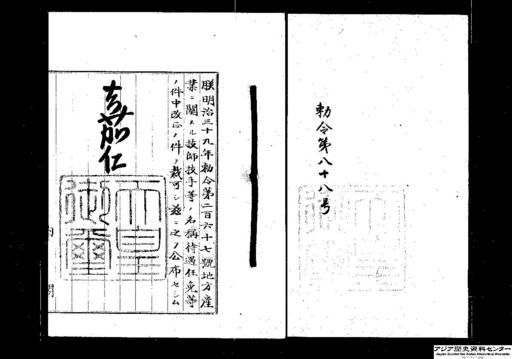 勅令第八十八号
朕明治三十九年勅令第二百六十七號地方産
業ニ關スル技師技手等ノ名稱待遇任免等
ノ件中改正ノ件ヲ裁可シ茲ニ之ヲ公布セシム
嘉仁
天皇
御璽
内閣
アジア歴史資料センター
Japan Center for Asian Historical Records